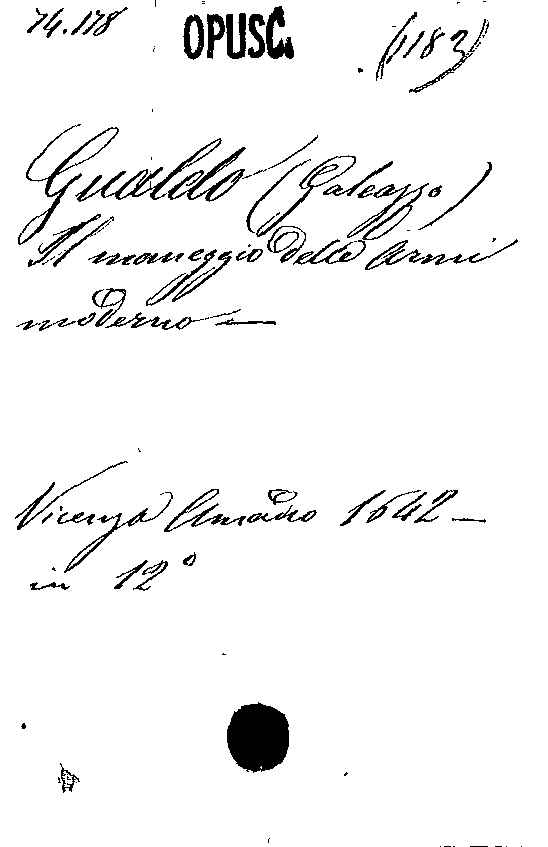 74.178 OPUSC. (1183)
Gualdo (Galeazzo)
Il maneggio delle Armi
moderno —
Vicenza Amadio 1642 —
in 12°